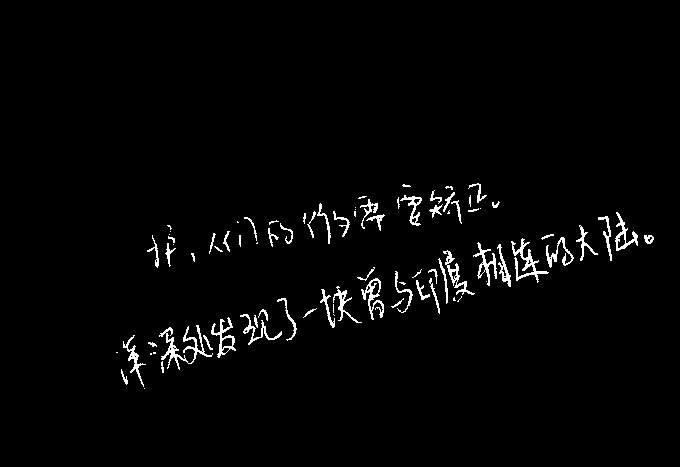 护，人们的行为需要矫正。
洋深处发现了一块曾与印度相连的大陆。